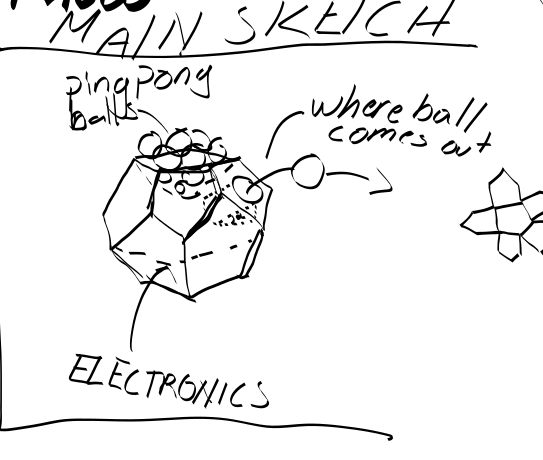 MAIN SKETCH
pingpong
balls
where ball
comes out
ELECTRONICS